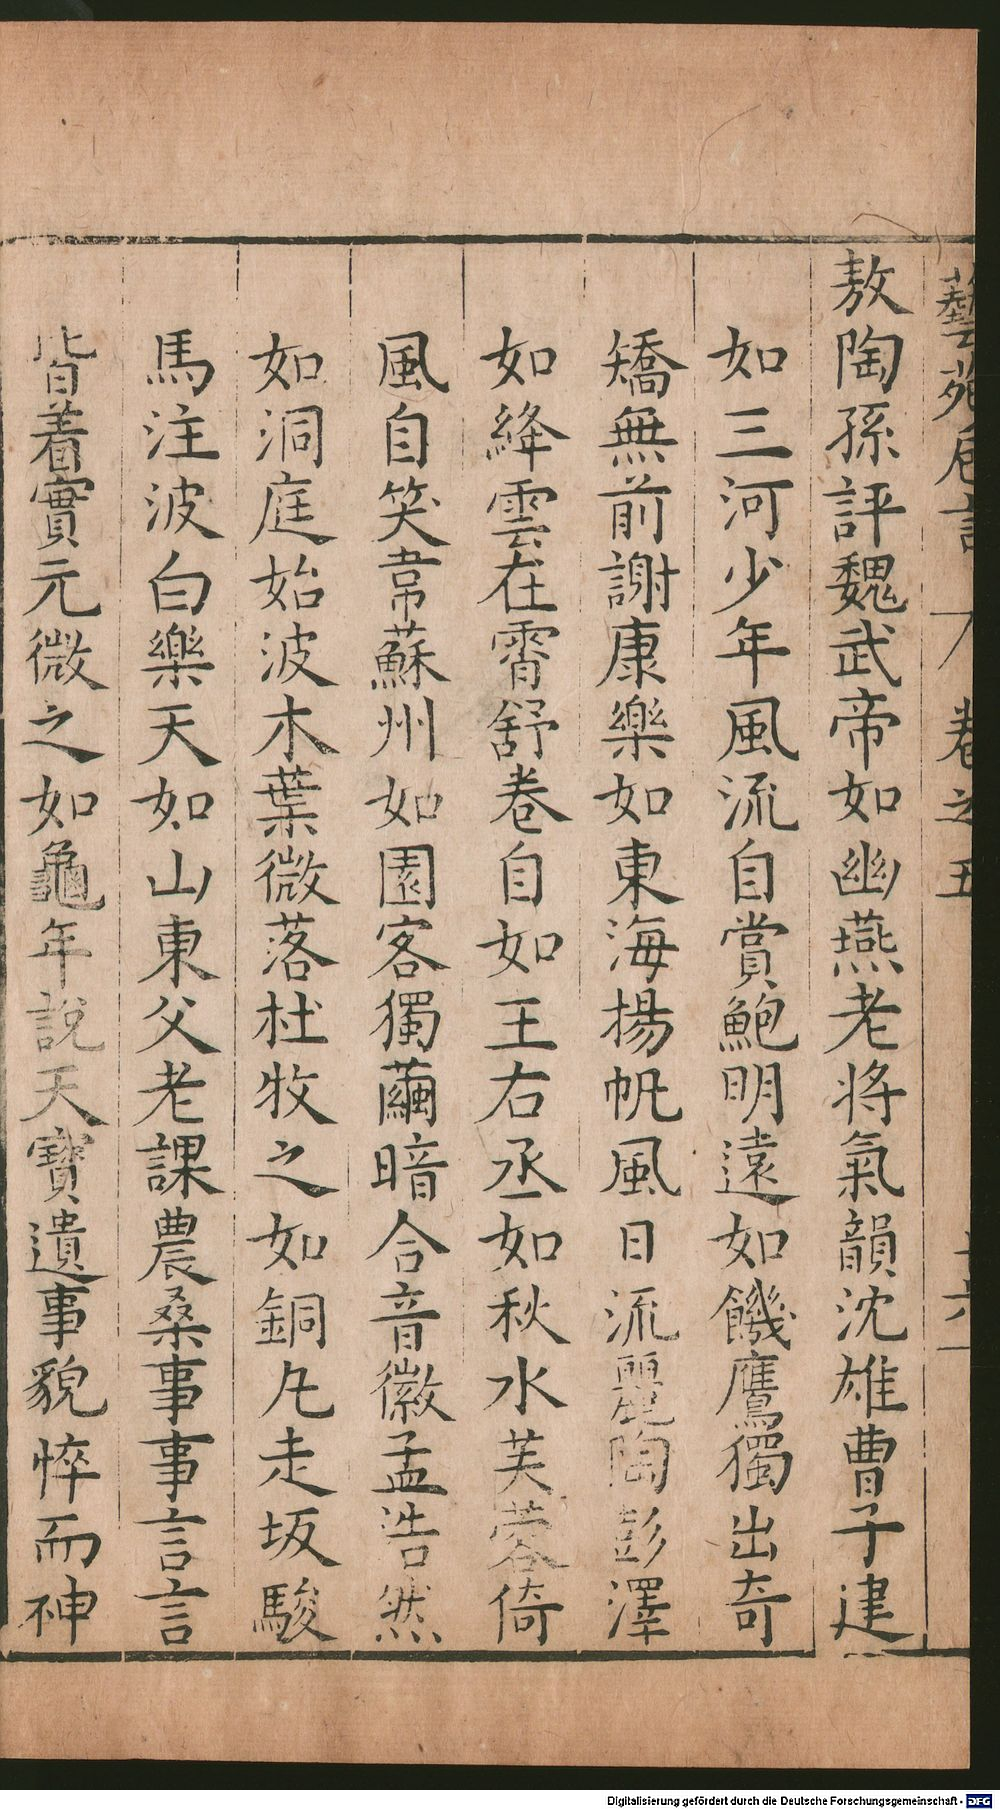 藝苑卮言 八 卷之五 十六
敖陶孫評魏武帝如幽燕老將氣韻沈雄曹子建
如三河少年風流自賞鮑明遠如饑鷹獨出奇
矯無前謝康樂如東海揚帆風日流麗陶彭澤
如絳雲在霄舒卷自如王右丞如秋水芙蓉倚
風自笑韋蘇州如園客獨繭暗合音徽孟浩然
如洞庭始波木葉微落杜牧之如銅凡走坂駿
馬注波白樂天如山東父老課農桑事事言言
皆着實元微之如龜年說天寶遺事貌悴而神
Digitalisierung gefördert durch die Deutsche Forschungsgemeinschaft - DFG